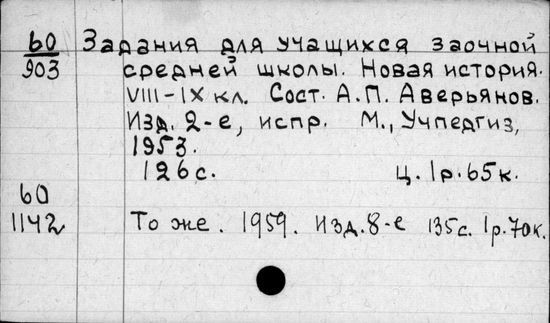 60 Задания для учащихся заочной
903 средней школы. Новая история.
VIII-IX кл. Сост. А.П. Аверьянов.
Изд. 2-е, испр. М., Учпедгиз,
1953.
126 с. ц. 1р.65к.
60
1142 То же. 1959. Изд. 8-е 135с. 1р.70к.